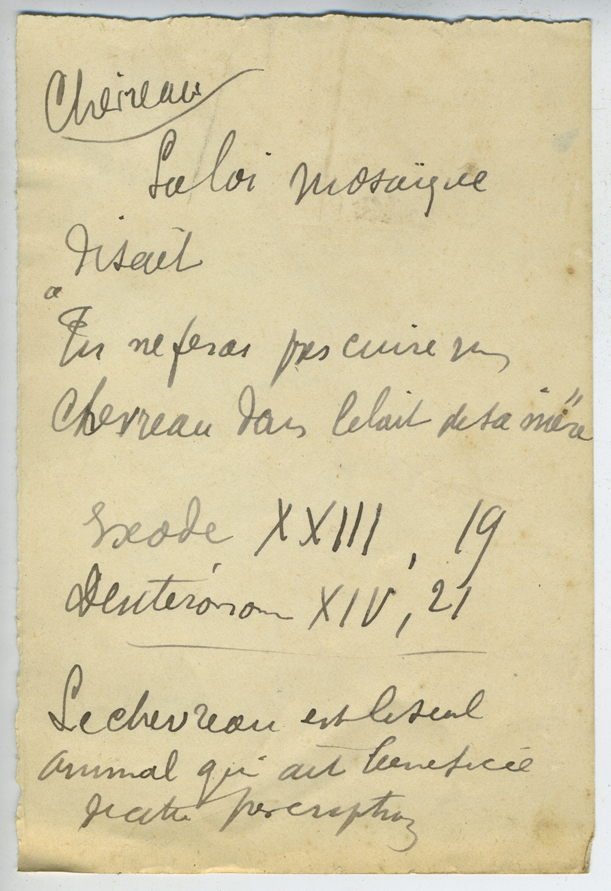 Chevreau
La loi mosaïque
disait
"Tu ne feras pas cuire un
Chevreau dans le lait de sa mère"
Exode XXIII, 19
Deutéronom XIV, 21
Le chevreau est le seul
animal qui ait beneficié
de cette